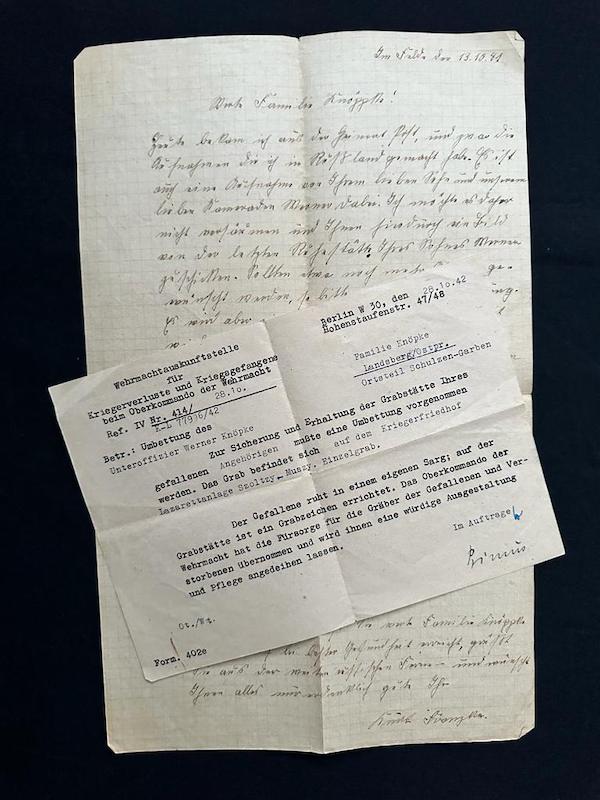 Im Felde den 13.10.41
Werte Familie Knöpke!
Heute bekam ich aus der Heimat Post, und zwar die
Aufnahmen die ich in Rußland gemacht habe. Es ist
auch eine Aufnahme von Ihrem lieben Sohn und unserem
lieben Kameraden Werner dabei. Ich möchte es daher
nicht versäumen und Ihnen hierdurch ein Bild
von der letzten Ruhestätte Ihres Sohnes Werner
zuschicken. Sollten etwa noch mehr ge-
wünscht werden, so bitte
Es wird aber
Wehrmachtauskunftstelle
für
Kriegerverluste und Kriegsgefangene
beim Oberkommando der Wehrmacht
Ref. IV Nr. 414/ 28.10.
Berlin W 30, den 28.10.42
Hohenstaufenstr. 47/48
Familie Knöpke
Landsberg/Ostpr.
Ortsteil Schulzen-Garben
Betr.: Umbettung des
Unteroffizier Werner Knöpke
Zur Sicherung und Erhaltung der Grabstätte Ihres
gefallenen Angehörigen mußte eine Umbettung vorgenommen
werden. Das Grab befindet sich auf dem Kriegerfriedhof
Lazarettanlage Szoltzy - Muszy. Einzelgrab.
Der Gefallene ruht in einem eigenen Sarg; auf der
Grabstätte ist ein Grabzeichen errichtet. Das Oberkommando der
Wehrmacht hat die Fürsorge für die Gräber der Gefallenen und Ver-
storbenen übernommen und wird ihnen eine würdige Ausgestaltung
und Pflege angedeihen lassen.
Im Auftrage
Ot./Wt.
Form. 402e
Sie werte Familie Knöpke
in bester Gesundheit erreicht, grüßt
Sie aus der weiten russischen Ferne und wünscht
Ihnen alles nur erdenklich gute Ihr
Kurt